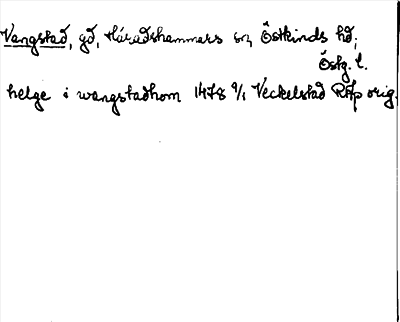 Vangstad, gd, Häradshammers sn, Östkinds hd,
Östg. l.
helge i wangstadhom 1478 9/1 Veckelstad RAp orig.